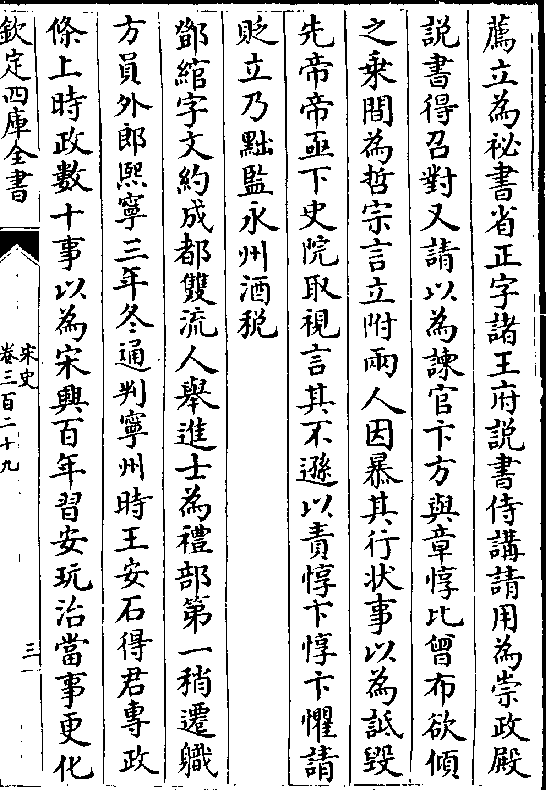 薦立為祕書省正字諸王府説書侍講請用為崇政殿
説書得召對又請以為諫官卞方與章惇比曾布欲傾
之乗間為哲宗言立附兩人因暴其行状事以為詆毀
先帝帝亟下史院取視言其不遜以責惇卞惇卞懼請
貶立乃黜監永州酒税
鄧綰字文約成都雙流人舉進士為禮部第一稍遷職
方員外郎熙寧三年冬通判寧州時王安石得君專政
條上時政數十事以為宋興百年習安玩治當事更化
欽定四庫全書
宋史
卷三百二十九
三